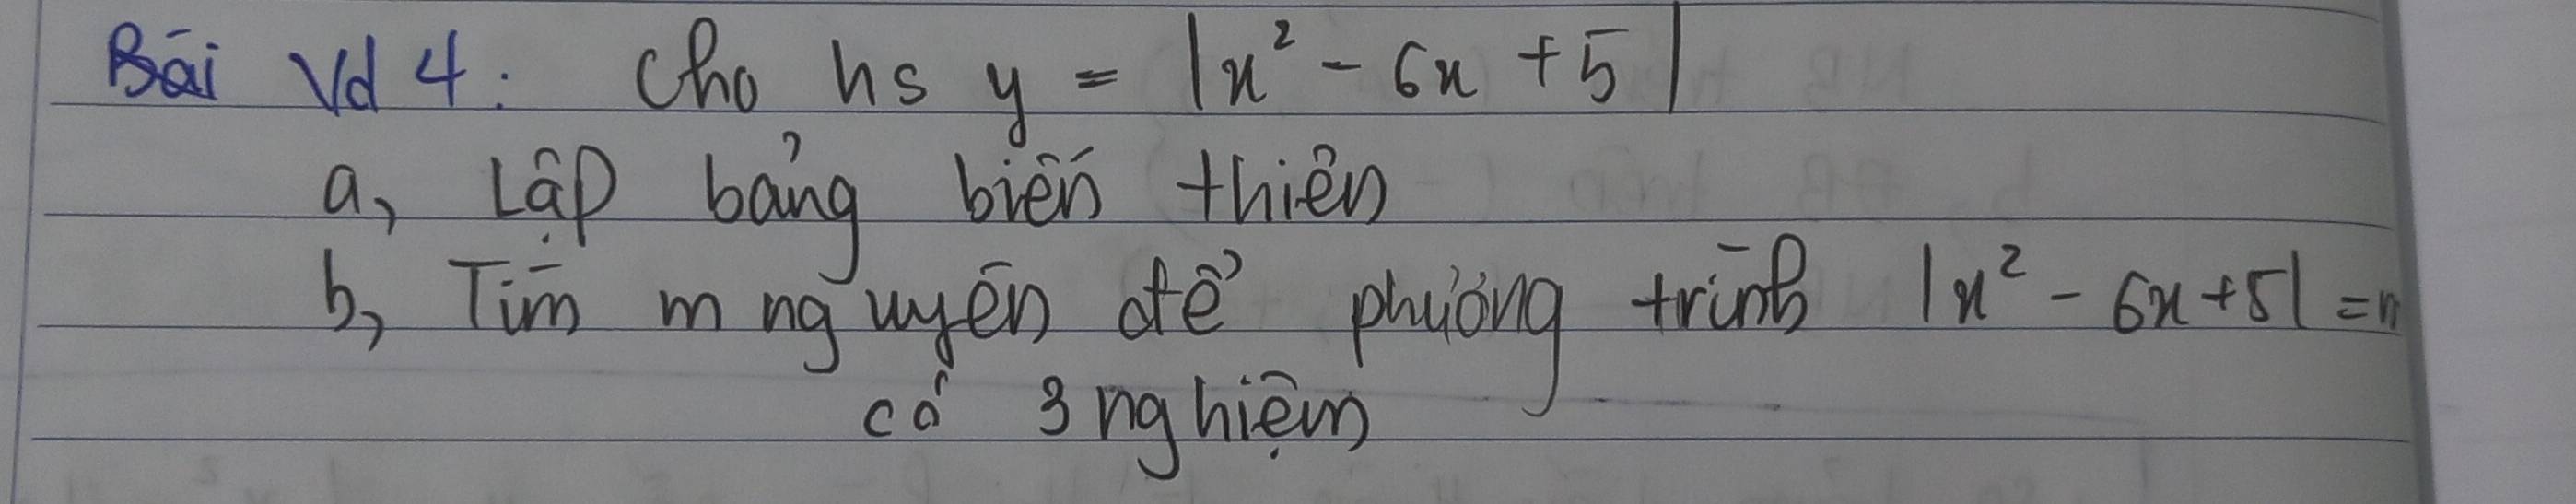 Bài Vd 4: Cho hs y = |x² - 6x + 5|
a, Lập bảng biến thiên
b, Tìm m nguyên để phương trình |x² - 6x + 5| = m
có 3 nghiệm